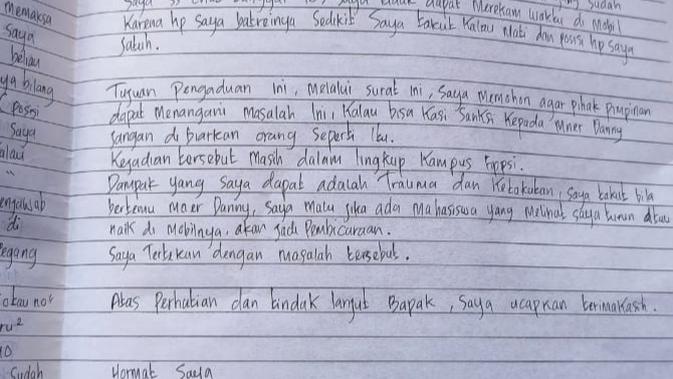 memaksa
Saya
beliau
ya bilang
posisi
saya
alau
di
egang
atau no
ru²
10
sudah
sudah
dapat Merekam waktu di Mobil
Karena hp saya batreinya Sedikit Saya takut Kalau Mati dan posisi hp saya
jatuh.
Tujuan Pengaduan Ini, Melalui surat Ini, Saya Memohon agar pihak Pimpinan
dapat Menangani Masalah Ini, Kalau bisa Kasi Sanksi Kepada Mner Danny
Jangan di biarkan orang Seperti Itu.
Kejadian tersebut Masih dalam lingkup Kampus
Dampak yang Saya dapat adalah Trauma dan Ketakutan, Saya takut bila
bertemu Mner Danny, Saya Malu jika ada Mahasiswa yang Melihat saya turun atau
naik di Mobilnya, akan Jadi Pembicaraan.
Saya Tertekan dengan masalah tersebut.
Atas Perhatian dan tindak lanjut Bapak, Saya ucapkan terimakasih.
Hormat Saya